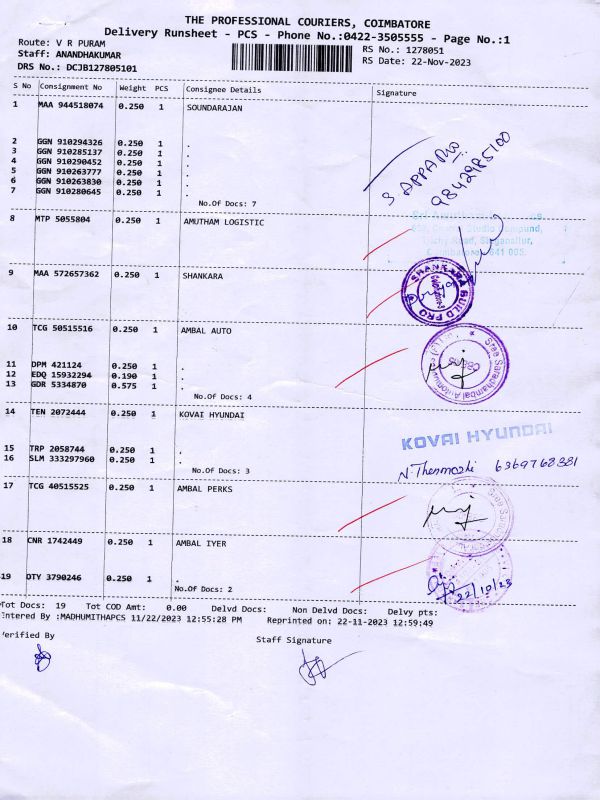 THE PROFESSIONAL COURIERS, COIMBATORE
Delivery Runsheet - PCS - Phone No.:0422-3505555 - Page No.:1
Route: V R PURAM
RS No.: 1278051
Staff: ANANDHAKUMAR
RS Date: 22-Nov-2023
DRS No.: DCJB127805101
S No Consignment No Weight PCS Consignee Details Signature
1 MAA 944518074 0.250 1 SOUNDARAJAN
2 GGN 910294326 0.250 1 .
3 GGN 910285137 0.250 1 .
4 GGN 910290452 0.250 1 .
5 GGN 910263777 0.250 1 .
6 GGN 910263830 0.250 1 .
7 GGN 910280645 0.250 1 .
No.Of Docs: 7
9842985100
8 MTP 5055804 0.250 1 AMUTHAM LOGISTIC
9 MAA 572657362 0.250 1 SHANKARA
SHANKARA BUILD PRO
10 TCG 50515516 0.250 1 AMBAL AUTO
11 DPM 421124 0.250 1 .
12 EDQ 15932294 0.190 1 .
13 GDR 5334870 0.575 1 .
No.Of Docs: 4
14 TEN 2072444 0.250 1 KOVAI HYUNDAI
KOVAI HYUNDAI
15 TRP 2058744 0.250 1 .
16 SLM 333297960 0.250 1 .
No.Of Docs: 3
17 TCG 40515525 0.250 1 AMBAL PERKS
18 CNR 1742449 0.250 1 AMBAL IYER
19 OTY 3790246 0.250 1 .
No.Of Docs: 2
22/10/23
Tot Docs: 19 Tot COD Amt: 0.00 Delvd Docs: Non Delvd Docs: Delvy pts:
Entered By :MADHUMITHAPCS 11/22/2023 12:55:28 PM Reprinted on: 22-11-2023 12:59:49
Verified By Staff Signature